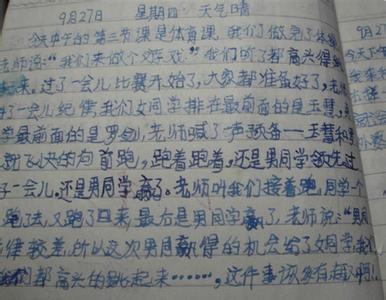 9月27日 星期四 天气晴
今天中午的第二节课是体育课,我们做完了体操
老师说:“我们来做个游戏。”我们听了都高兴得
起来。过了一会儿比赛开始了,大家都准备好了,老
了一会儿纪律,我们女同学排在最前面的是玉慧,
学最前面的是罗剑,老师喊了一声预备——玉慧和
就飞快的向前跑,跑着跑着,还是男同学领先过
了一会儿,还是男同学赢了。老师叫我们接着跑,同学一个
跑了去,又跑了回来,最后是男同学赢了,老师说:“男同
律较差,所以这次男同赢得的机会给了女同学,我
们都高兴的跳起来……,这件事该多有趣啊!
9月27
今天下